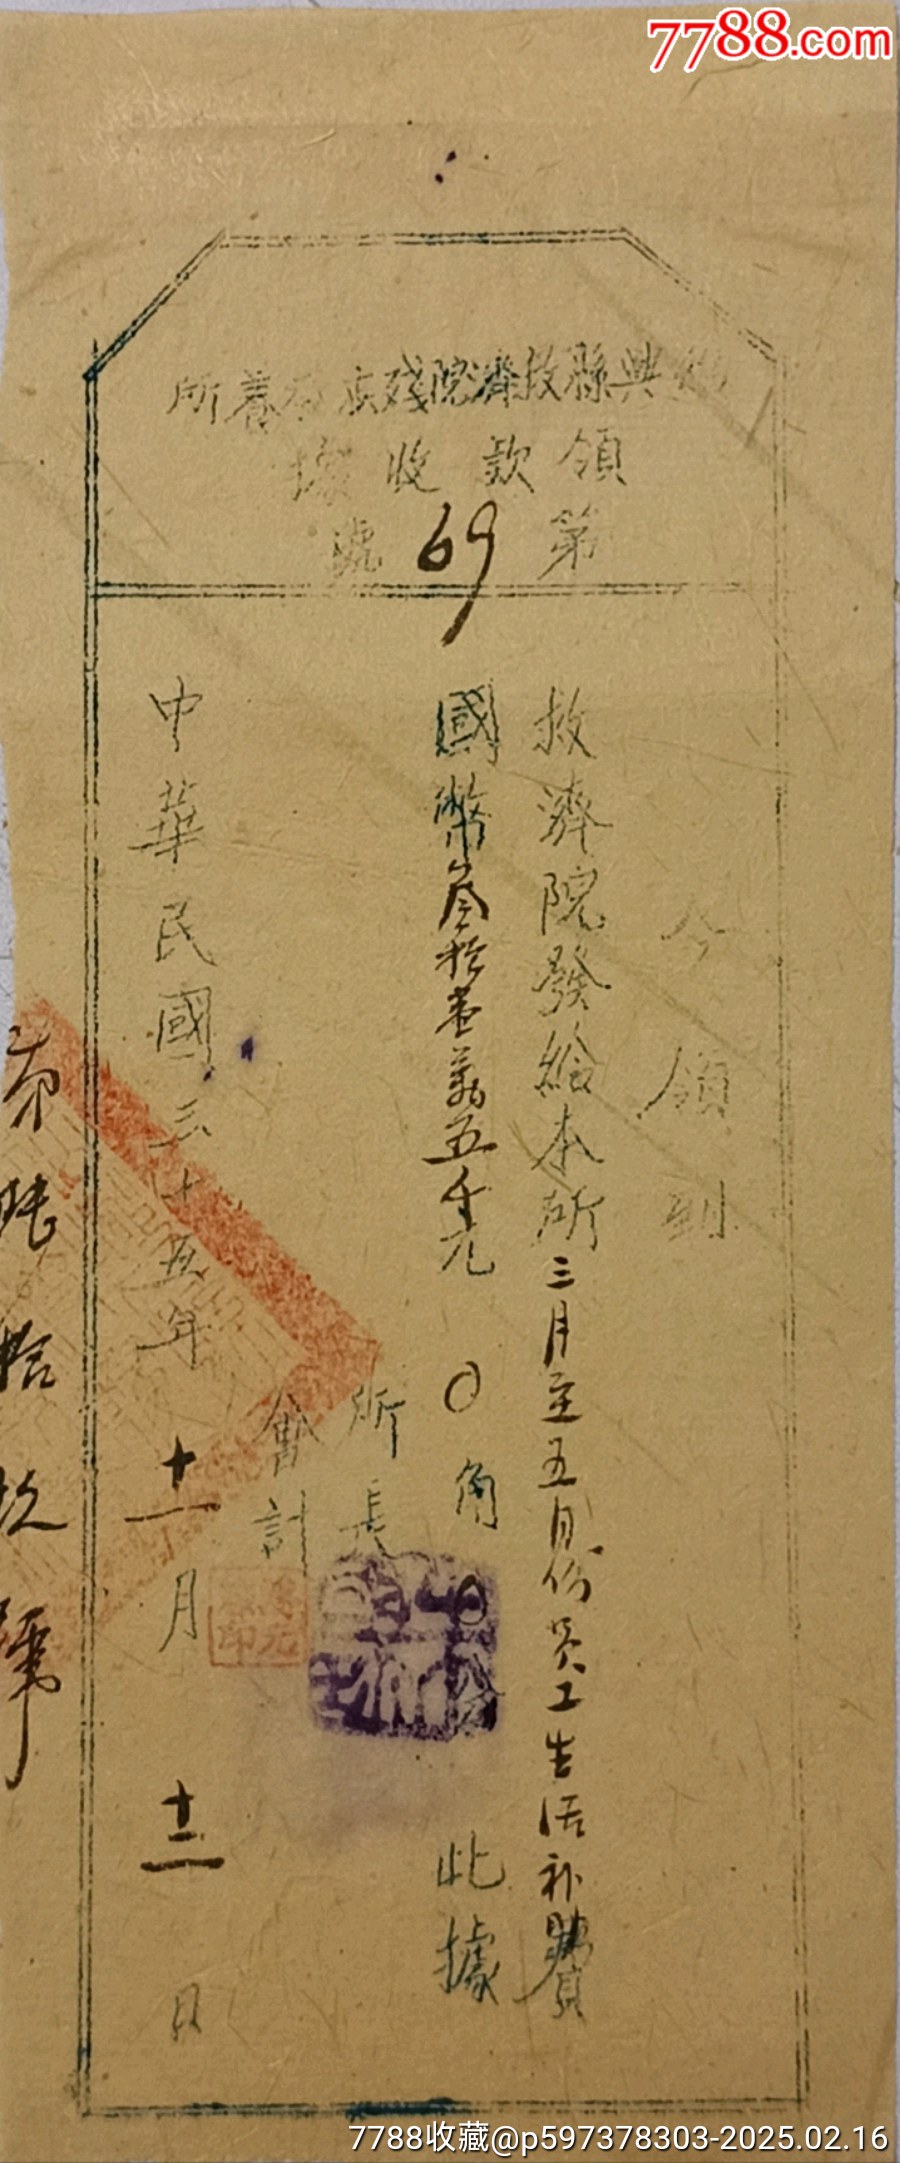 7788.com
興縣救濟院殘疾養所
領款收據
第69號
今領到
救濟院發給本所三月至五月份員工生活补
國幣叁拾壹萬五千元〇角〇分 此據
所長
會計
中華民國三十五年十一月十二日
陸拾玖號
7788收藏@p597378303-2025.02.16